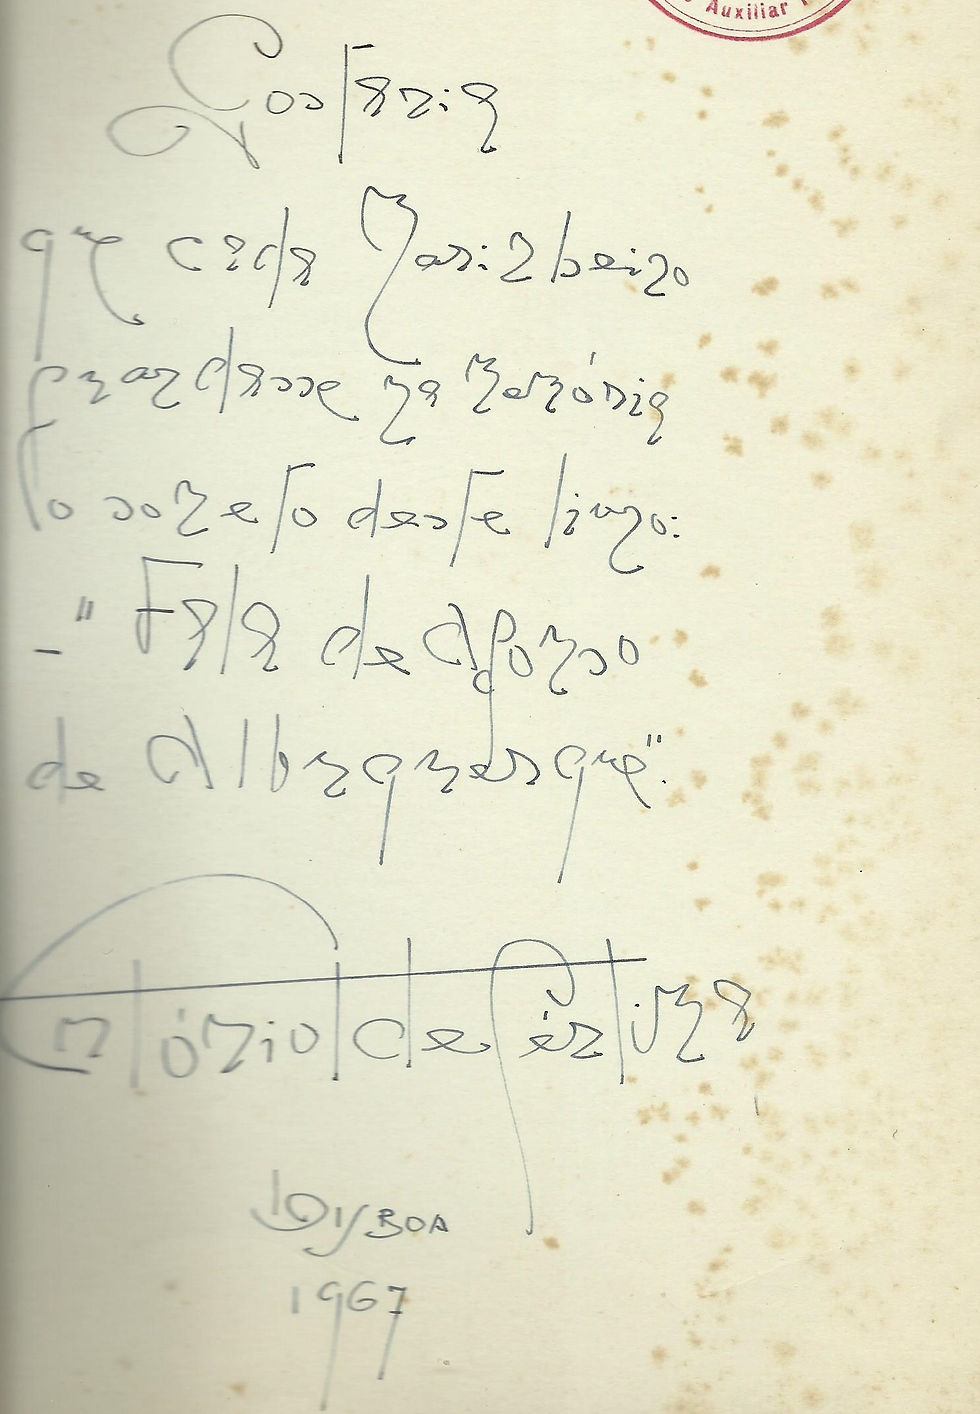 Auxiliar
Gostaria
que cada Marinheiro
guardasse na memória
o soneto deste livro:
– "Fala de Afonso
de Albuquerque".
António de Cértima
LISBOA
1967